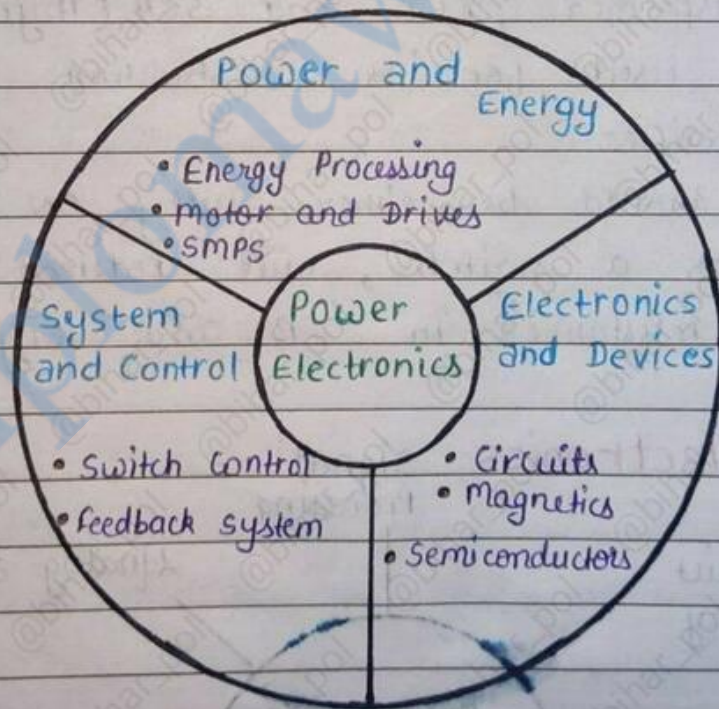 Power and
Energy
• Energy Processing
• Motor and Drives
• SMPS
System
and Control
Power
Electronics
Electronics
and Devices
• Switch Control
• Feedback system
• Circuits
• Magnetics
• Semiconductors
@bihar_pol